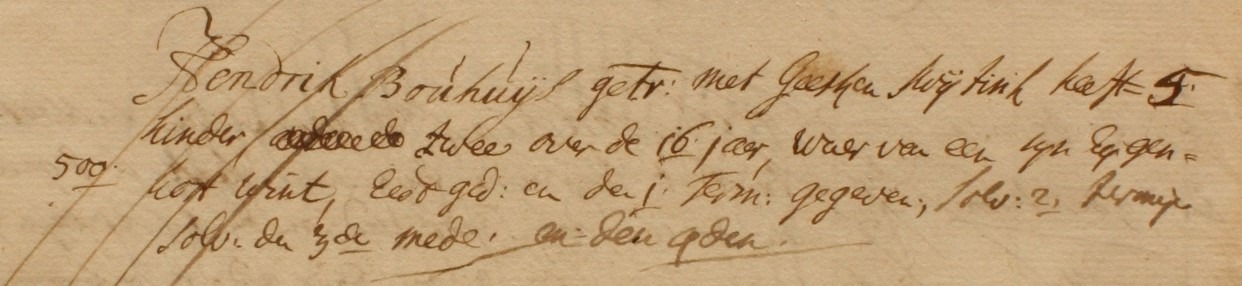 Hendrik Bouhuijs getr: met Geesken Wijtink heeft 5.
kinder twee over de 16 jaer, waer van een syn Eygen=
500. kost wint, Eed ged: en den 1 Term: gegeven, solv: 2, termyn
solv. den 3de mede. en den 4den.